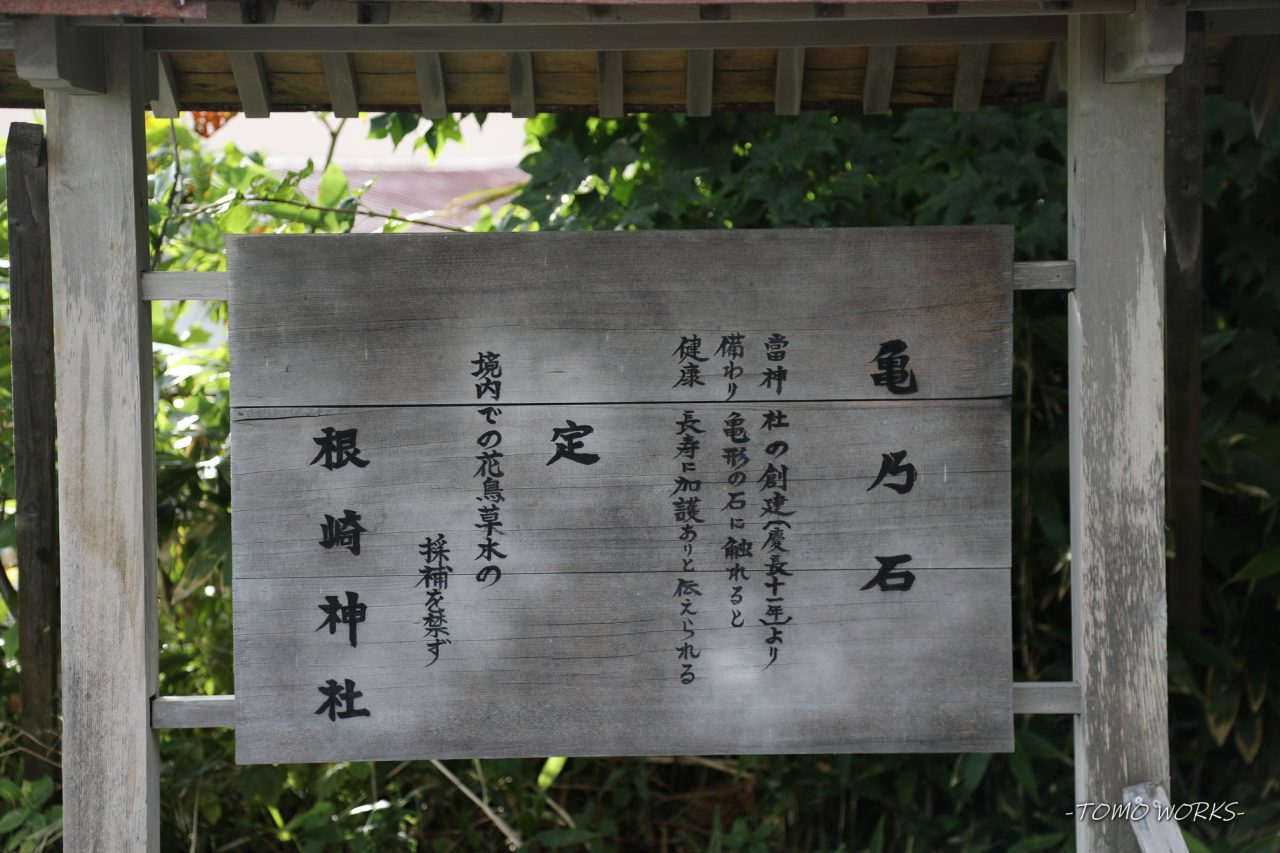 亀乃石
當神社の創建（慶長十一年）より
備わり亀形の石に触れると
健康長寿に加護ありと伝えられる
定
境内での花鳥草木の
採補を禁ず
根崎神社
-TOMO WORKS-